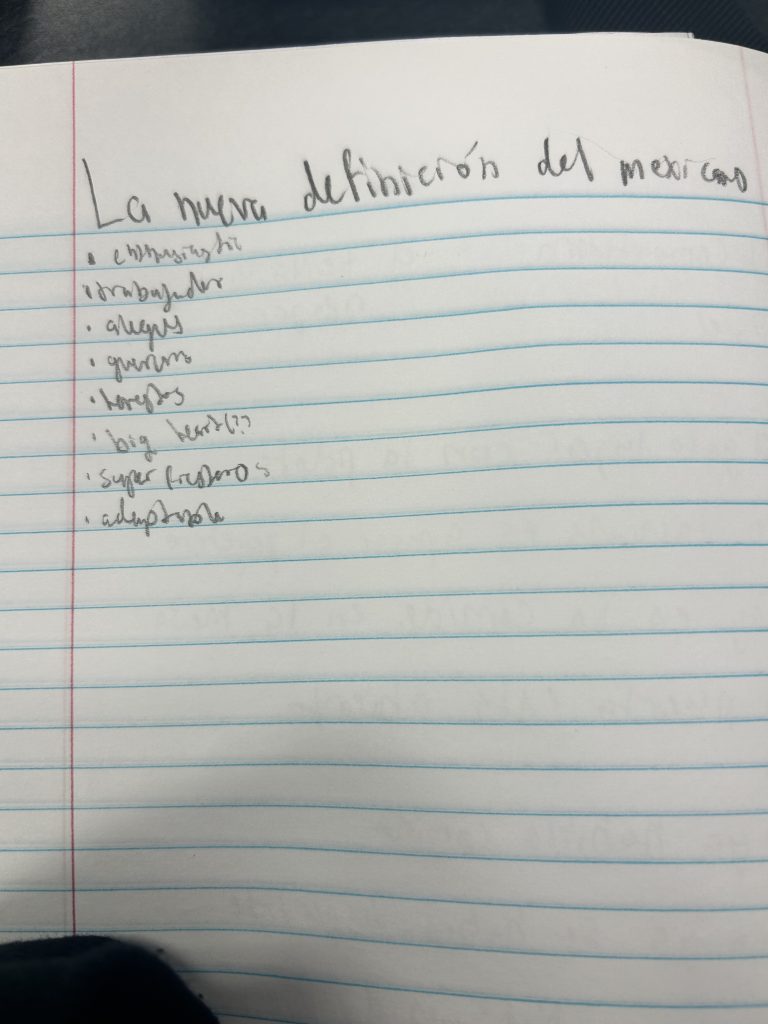 La nueva definición del mexicano
• enthusiastic
• trabajador
• alegres
•
•
• big heart(??
• super fiesteros
• adaptable